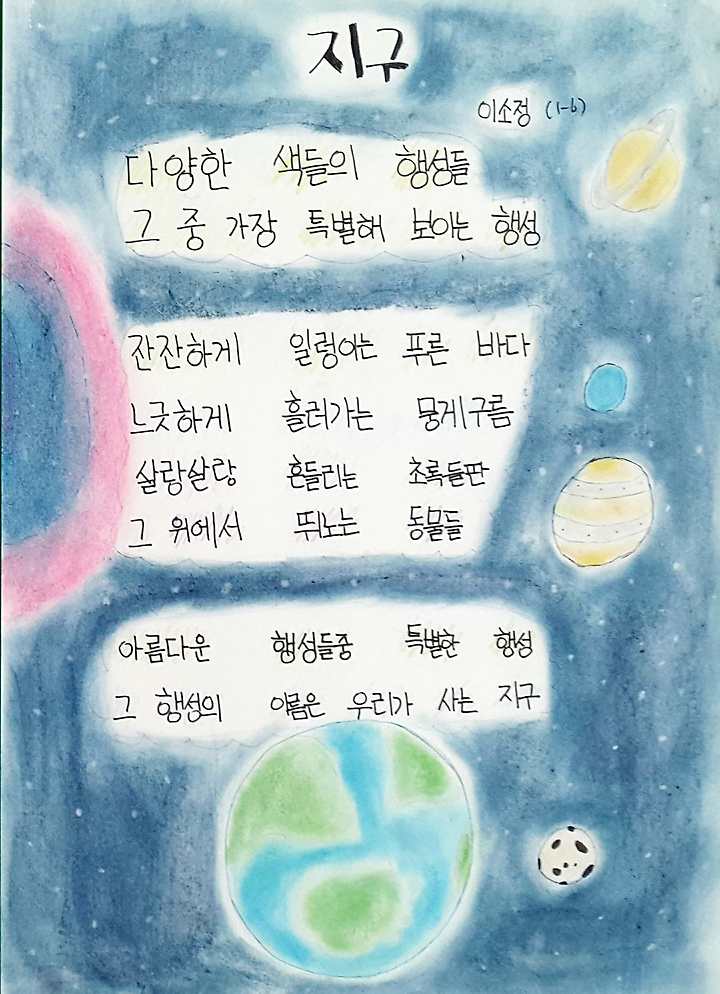 지구
이소정 (1-6)
다양한 색들의 행성들
그 중 가장 특별해 보이는 행성
잔잔하게 일렁이는 푸른 바다
느긋하게 흘러가는 뭉게구름
살랑살랑 흔들리는 초록들판
그 위에서 뛰노는 동물들
아름다운 행성들중 특별한 행성
그 행성의 이름은 우리가 사는 지구